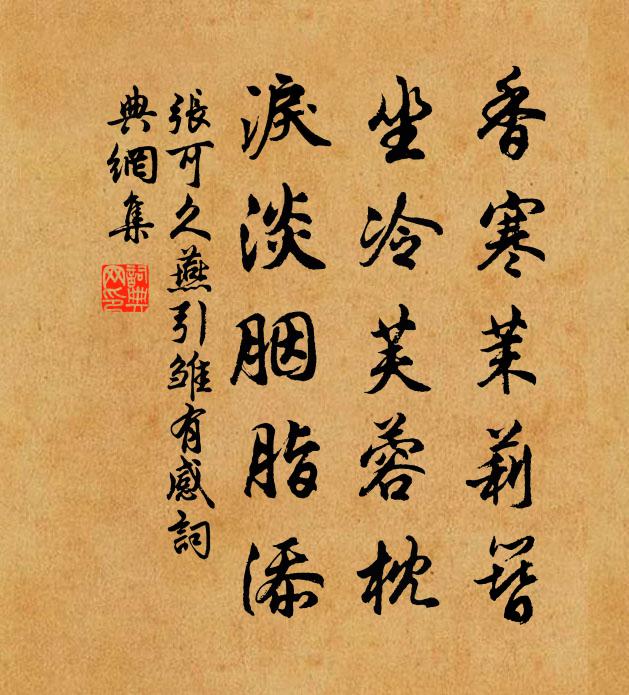 香寒茉莉簪
坐冷芙蓉枕
淚淡胭脂添
張可久燕引雏有感詞
典網集
詞典網印